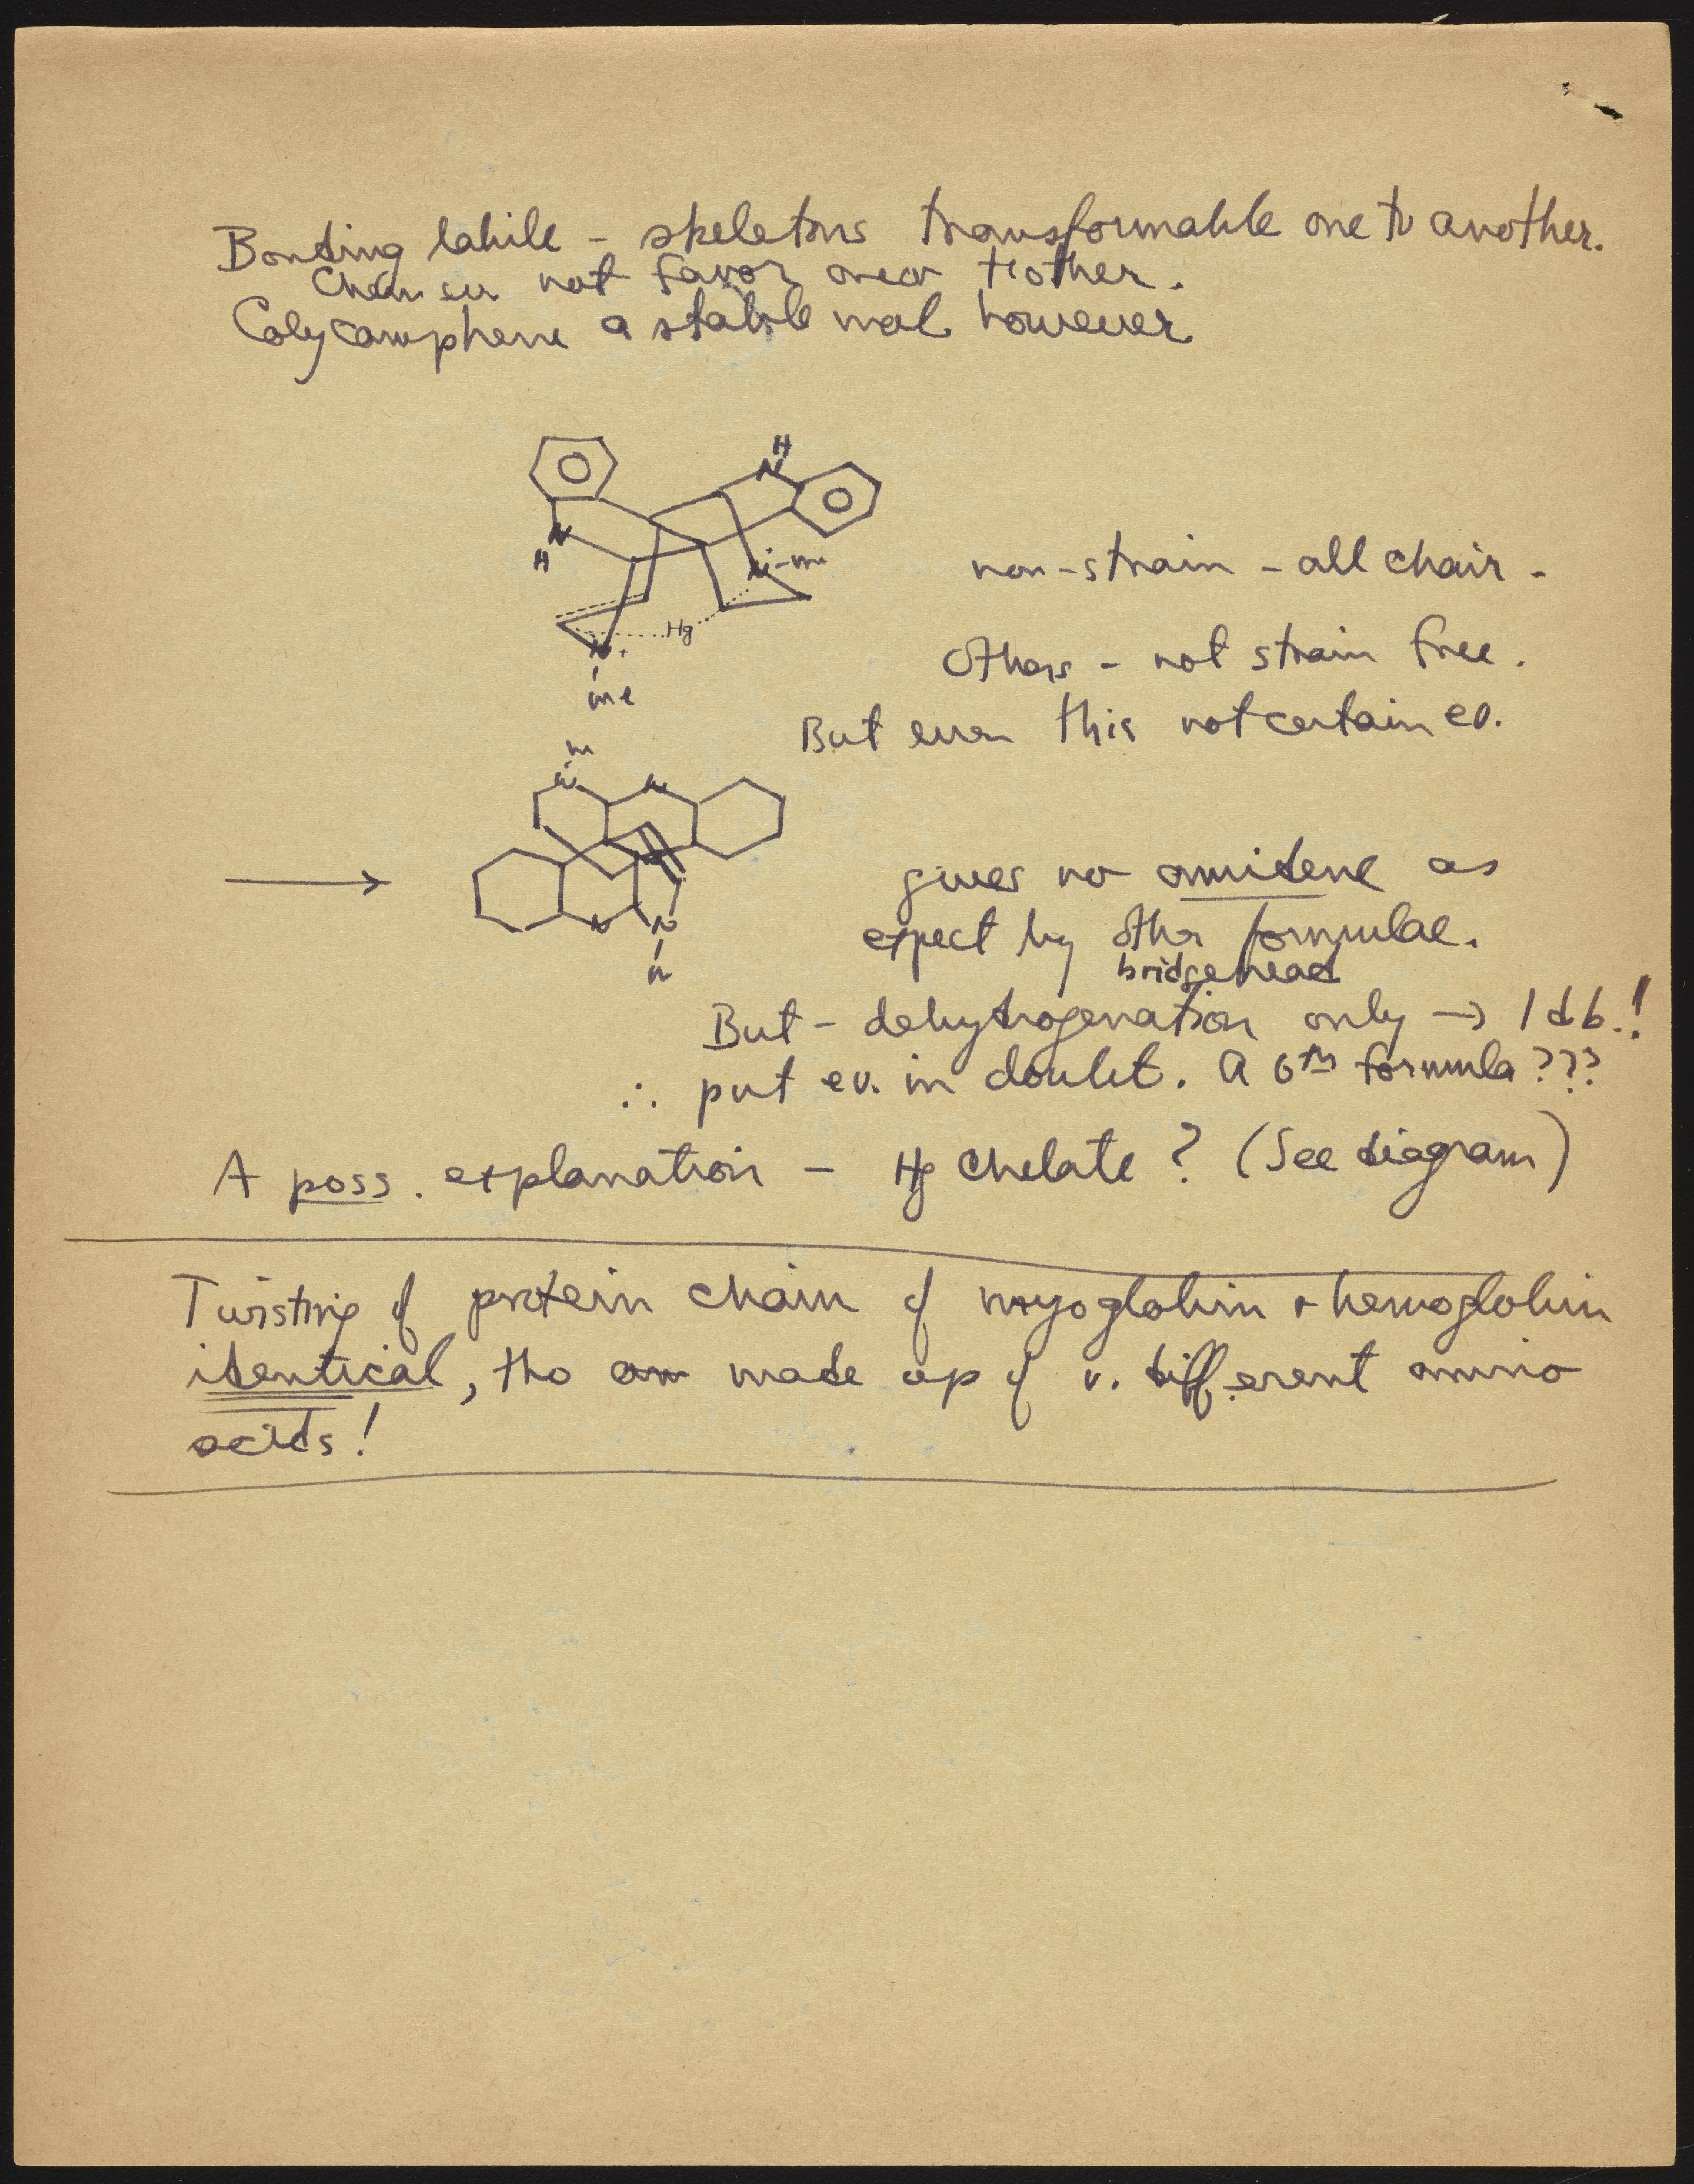 Bonding labile - skeletons transformable one to another.
Chem ev not favor one or t'other.
Calycanphene a stable mol however.
H
N
N
H
N-me
Hg
N+
me
non-strain - all chair -
Others - not strain free.
But even this not certain ev.
m
N
N
N
N
m
→
gives no amidene as
expect by other formulae.
bridgehead
But - dehydrogenation only → 1 db.!
∴ put ev. in doubt. A 6th formula ???
A poss. explanation - Hg chelate? (See diagram)
Twisting of protein chain of myoglobin + hemoglobin
identical, tho made up of v. different amino
acids!